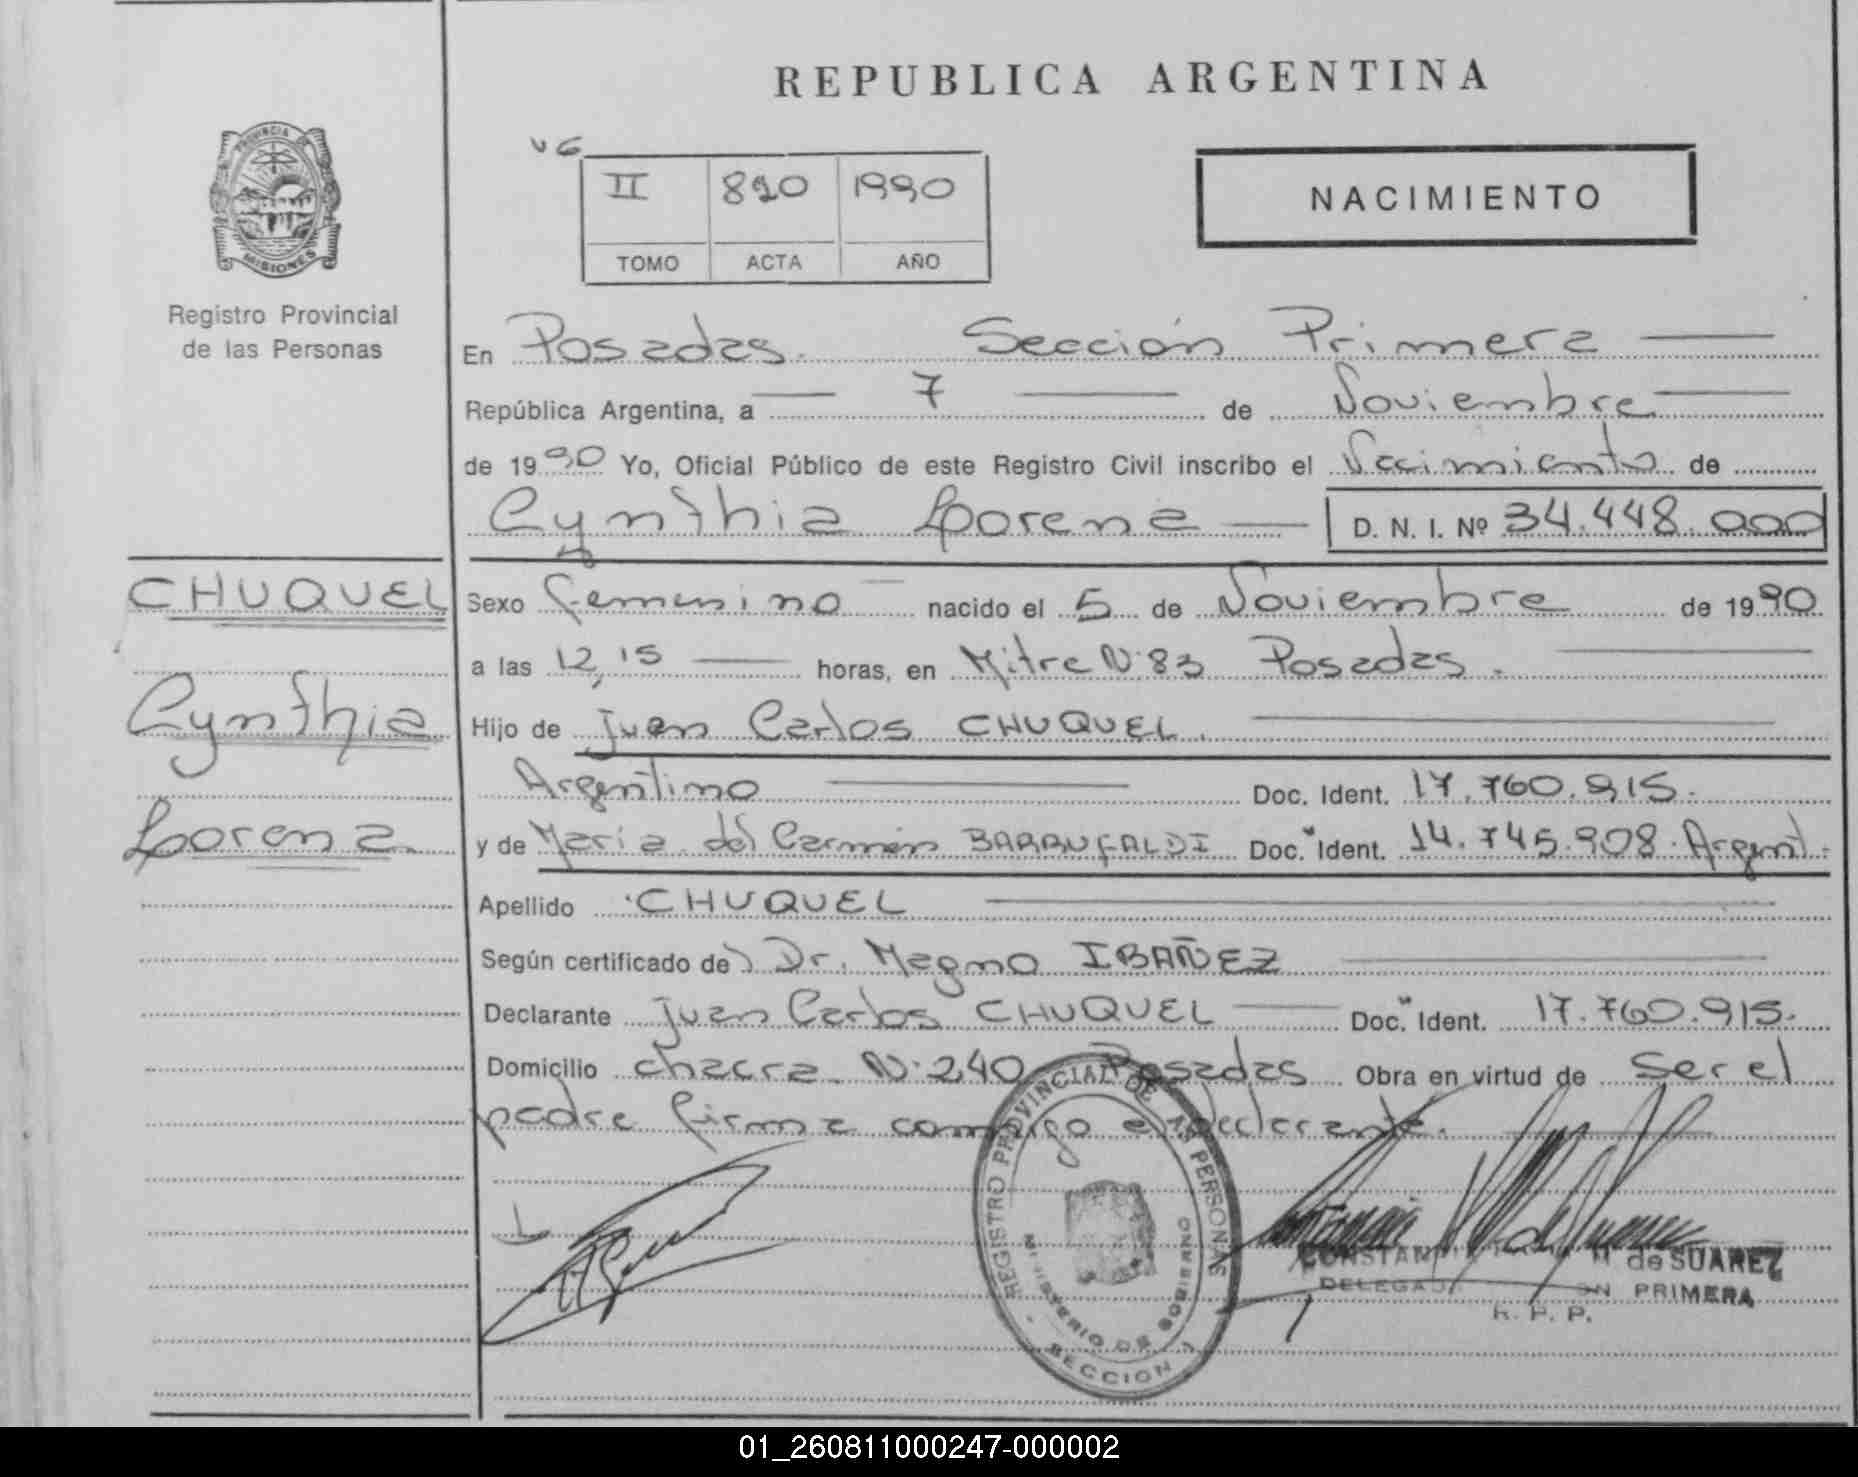 REPUBLICA ARGENTINA
PROVINCIA DE
MISIONES
Registro Provincial
de las Personas
II 820 1990
TOMO ACTA AÑO
NACIMIENTO
En Posadas. Sección Primera
República Argentina, a 7 de Noviembre
de 1990 Yo, Oficial Público de este Registro Civil inscribo el Nacimiento de
Cynthia Lorena D. N. I. Nº 34.448.000
CHUQUEL
Cynthia
Lorena
Sexo Femenino nacido el 5 de Noviembre de 1990
a las 12,15 horas, en Mitre N·83 Posadas.
Hijo de Juan Carlos CHUQUEL.
Argentino Doc. Ident. 17.760.915.
y de María del Carmen BARRUFALDI Doc. Ident. 14.745.908. Argent.
Apellido CHUQUEL
Según certificado del Dr. Magno IBAÑEZ
Declarante Juan Carlos CHUQUEL Doc. Ident. 17.760.915.
Domicilio chacra N·240 Posadas Obra en virtud de ser el
padre firma conmigo el declarante.
REGISTRO PROVINCIAL DE LAS PERSONAS
MINISTERIO DE GOBIERNO
SECCION 1
de SUAREZ
PRIMERA
R. P. P.
01_260811000247-000002